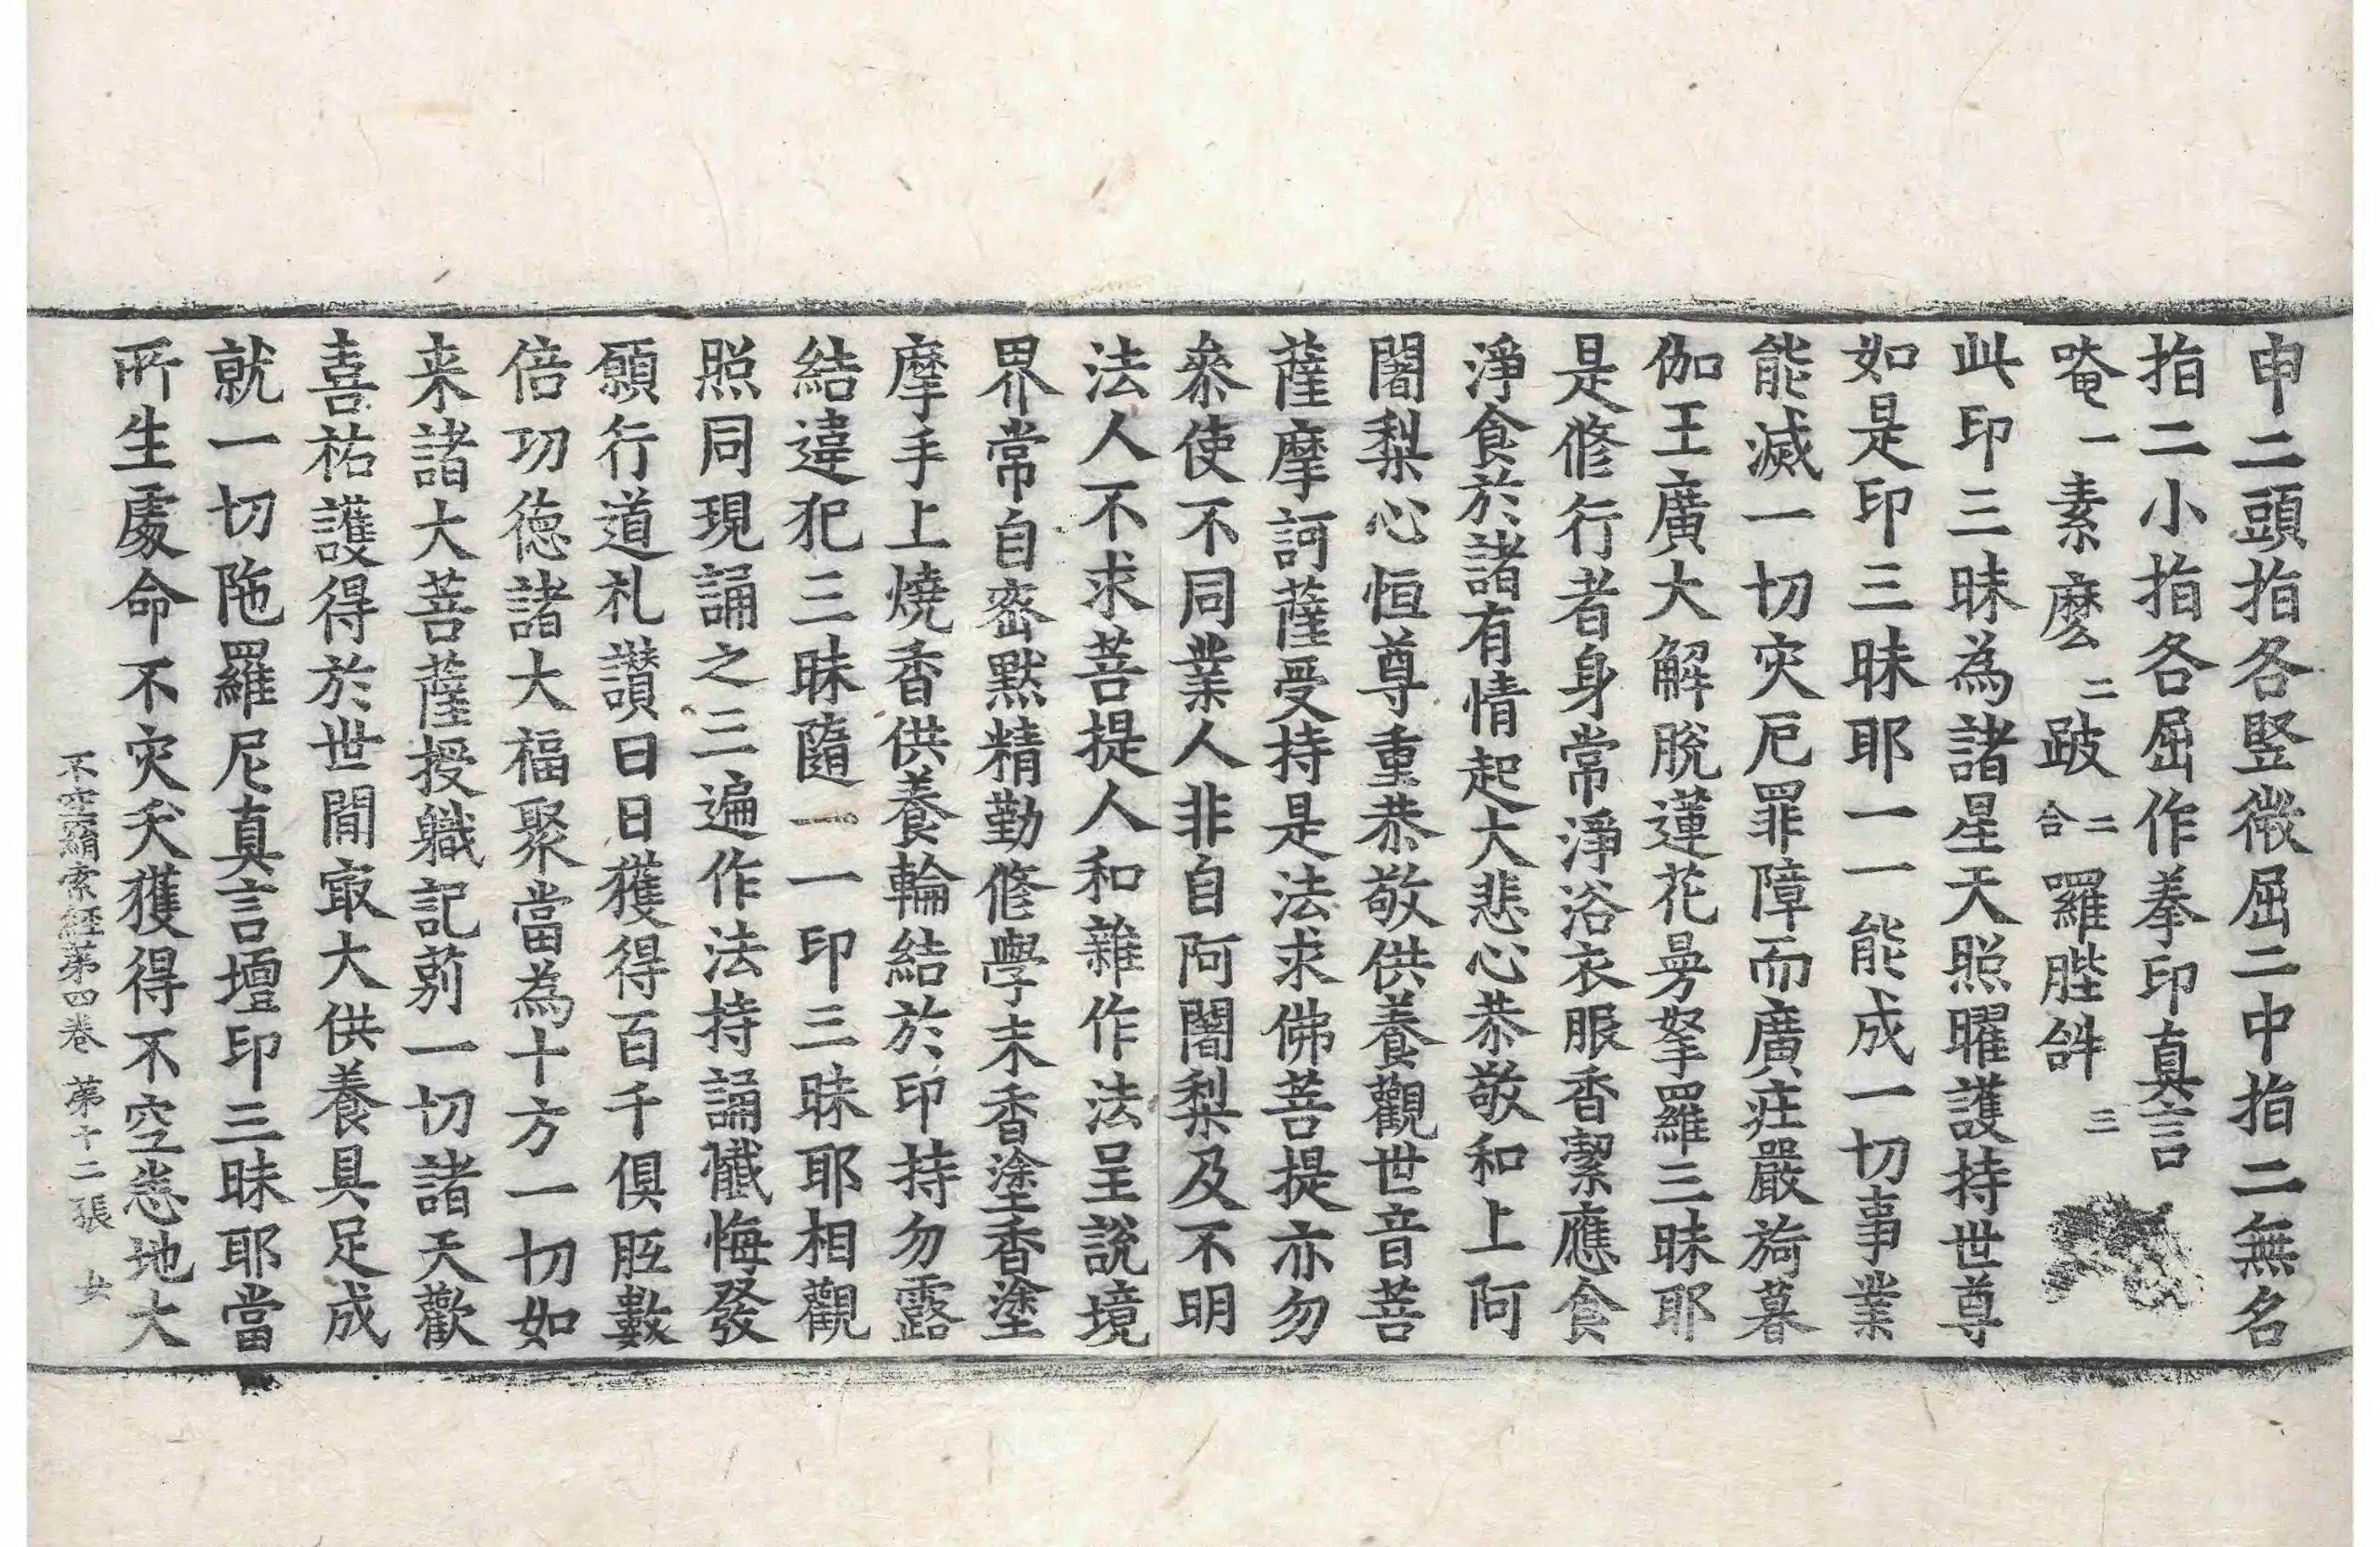 申二頭指各竪微屈二中指二無名
指二小指各屈作拳印真言
唵一素麽二跛二合羅胜𤙖三
此印三昧為諸星天照曜護持世尊
如是印三昧耶一一能成一切事業
能滅一切灾厄罪障而廣莊嚴旖暮
伽王廣大解脫蓮花曼拏羅三昧耶
是修行者身常淨浴衣服香潔應食
淨食於諸有情起大悲心恭敬和上阿
闍梨心恒尊重恭敬供養觀世音菩
薩摩訶薩受持是法求佛菩提亦勿
叅使不同業人非自阿闍梨及不明
法人不求菩提人和雜作法呈說境
界常自密默精勤修學末香塗香塗
摩手上燒香供養輪結於印持勿露
結違犯三昧隨一一印三昧耶相觀
照同現誦之三遍作法持誦懺悔發
願行道礼讃日日獲得百千俱胝數
倍功德諸大福聚當為十方一切如
来諸大菩薩授職記莂一切諸天歡
喜祐護得於世閒㝡大供養具足成
就一切陁羅尼真言壇印三昧耶當
所生處命不灾夭獲得不空悉地大
不空羂索經第四卷 第十二張 女